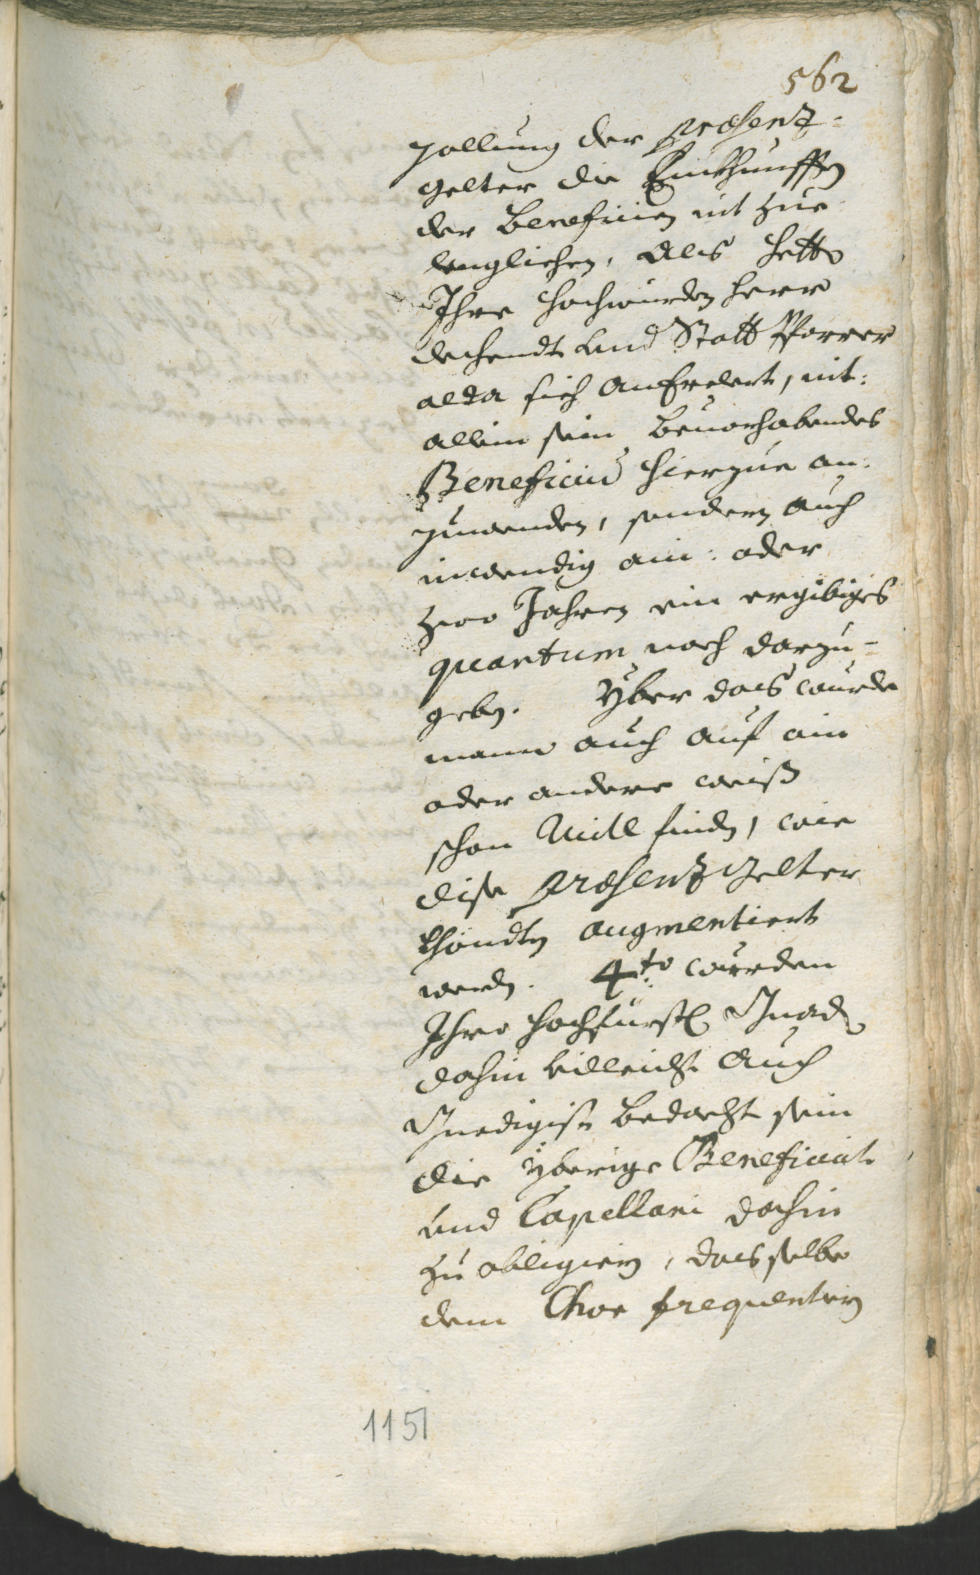 562
zallung der præsenz-
gelter die Einkhunfften
der Beneficien nit zue
lenglichen, Als hette
Ihre Hochwürden Herr
dechandt und Statt Pfarrer
alda sich anerclert, nit:
allein sein Beuorhabendes
Beneficium hierzue an:
zuwenden, sondern auch
inwendig ain: oder
zwo Jahren ein ergibiges
quantum noch darzu-
geben. Yber dass wurde
mann auch auf ain
oder andere weiß
schon Mitl finden, wie
dise præsenz gelter
khöndten augmentiert
werden. 4to wurden
Ihro hochfürstl Gnaden
dahin villeicht auch
Gnedigist bedacht sein
die yberige Beneficiat
und Capellani dahin
zu obligiern, dass selbe
dem Chor frequentiern
1151